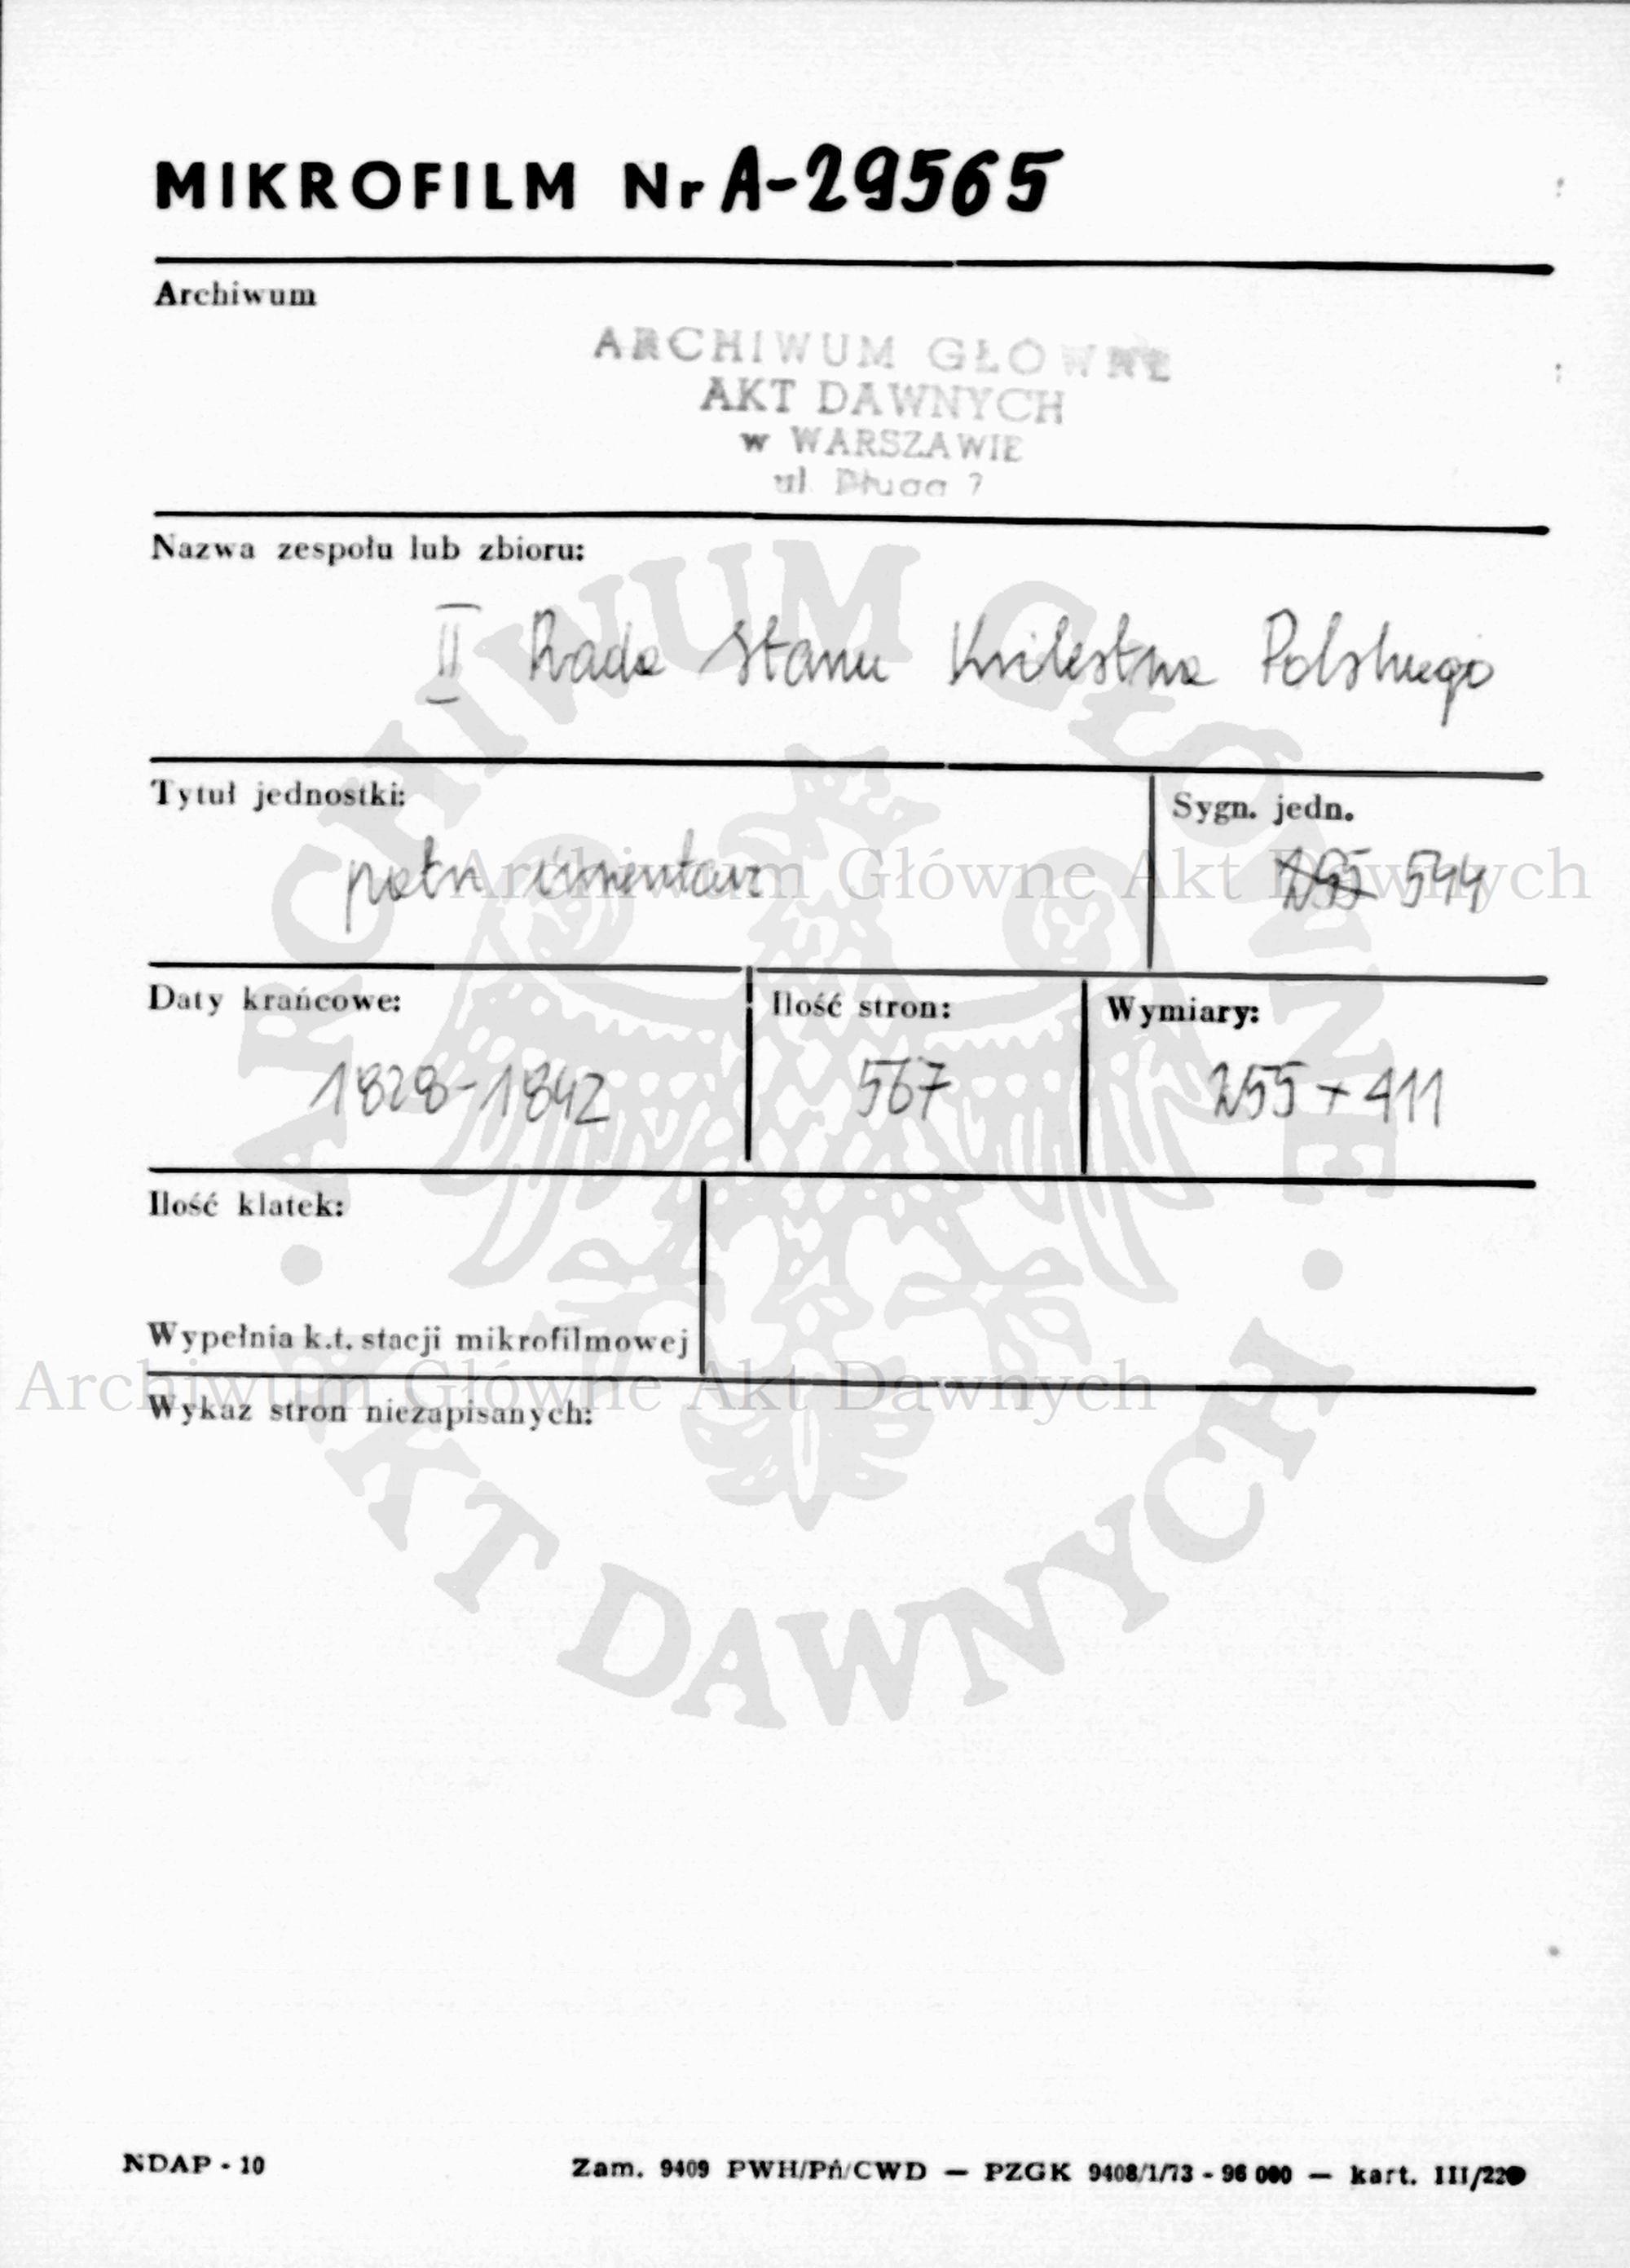 MIKROFILM Nr A-29565
Archiwum
ARCHIWUM GŁÓWNE
AKT DAWNYCH
w WARSZAWIE
ul. Długa 7
Nazwa zespołu lub zbioru:
II Rada Stanu Królestwa Polskiego
Tytuł jednostki:
patrz inwentarz
Sygn. jedn.
544
Daty krańcowe:
1828-1842
Ilość stron:
567
Wymiary:
255 + 411
Ilość klatek:
Wypełnia k.t. stacji mikrofilmowej
Wykaz stron niezapisanych:
ARCHIWUM GŁÓWNE
AKT DAWNYCH
Archiwum Główne Akt Dawnych
Archiwum Główne Akt Dawnych
NDAP - 10
Zam. 9409 PWH/Pń/CWD — PZGK 9408/1/73 - 96 000 — kart. III/220